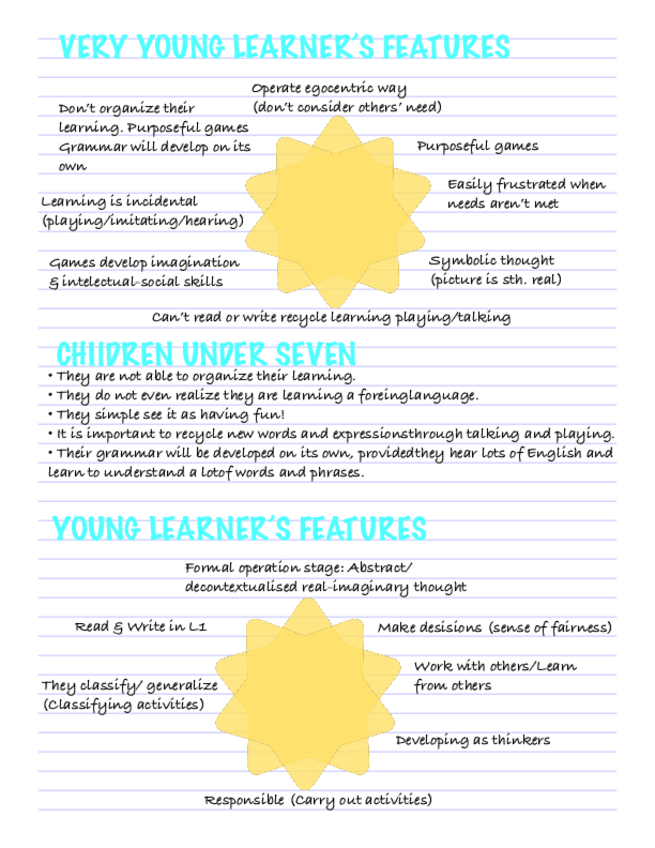 VERY YOUNG LEARNER'S FEATURES
Operate egocentric way
(don't consider others' need)
Don't organize their
learning. Purposeful games
Grammar will develop on its
own
Purposeful games
Easily frustrated when
needs aren't met
Learning is incidental
(playing/imitating/hearing)
Games develop imagination
& intelectual-social skills
Symbolic thought
(picture is sth. real)
Can't read or write recycle learning playing/talking
CHIlDREN UNDER SEVEN
• They are not able to organize their learning.
• They do not even realize they are learning a foreinglanguage.
• They simple see it as having fun!
• It is important to recycle new words and expressionsthrough talking and playing.
• Their grammar will be developed on its own, providedthey hear lots of English and
learn to understand a lotof words and phrases.
YOUNG LEARNER'S FEATURES
Formal operation stage: Abstract/
decontextualised real-imaginary thought
Read & Write in L1
Make desisions (sense of fairness)
Work with others/Learn
from others
They classify/ generalize
(Classifying activities)
Developing as thinkers
Responsible (Carry out activities)